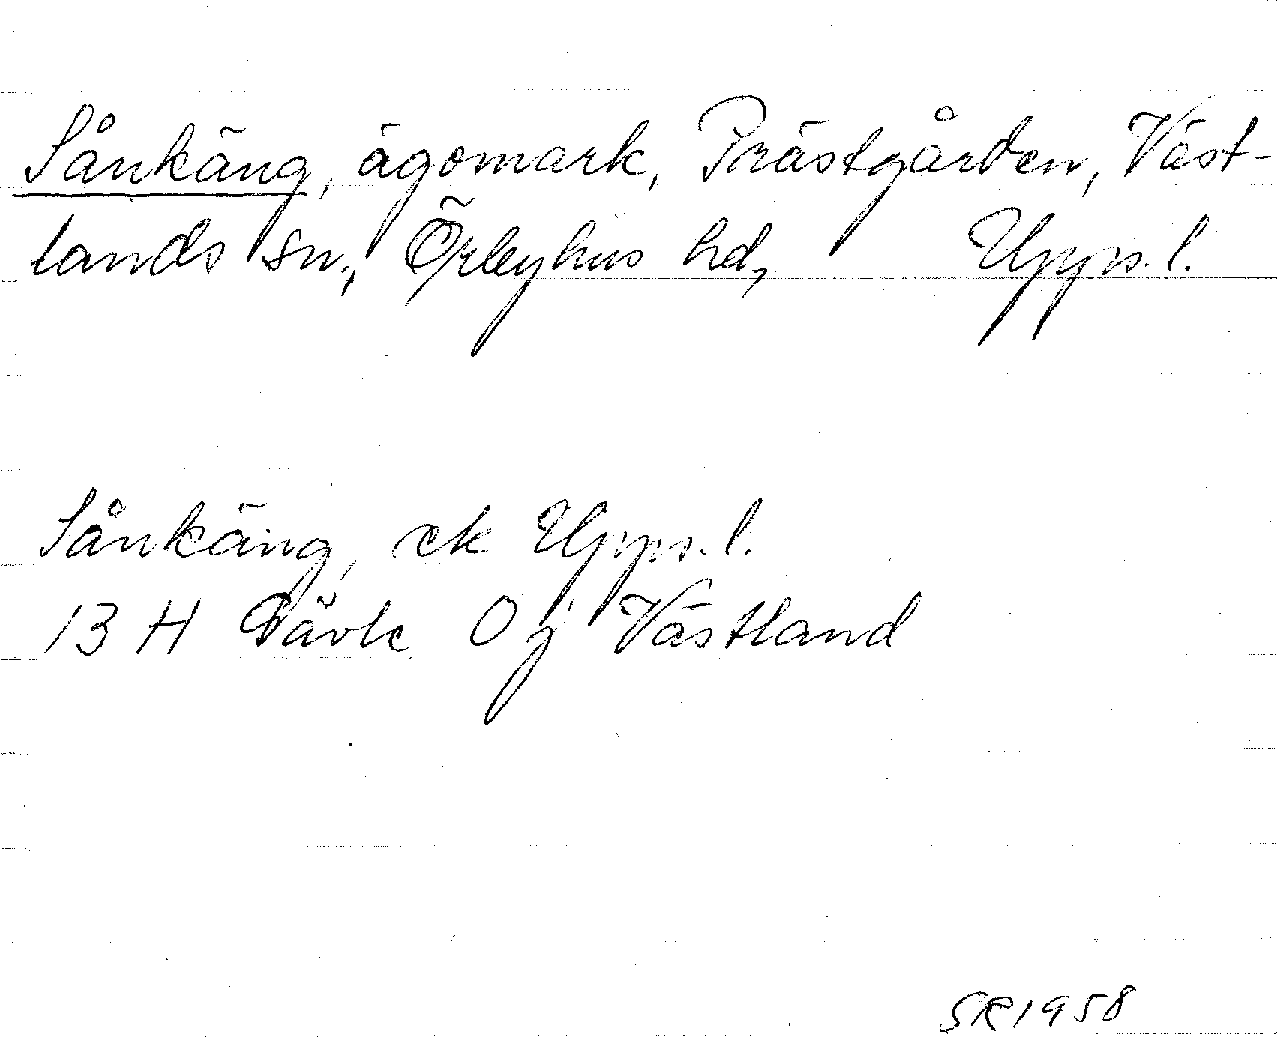 Sånkäng, ägomark, Prästgården, Väst-
lands sn., Örbyhus hd, Upps. l.
Sånkäng, ek Upps. l.
13 H Gävle 0 j Västland
SR 1958